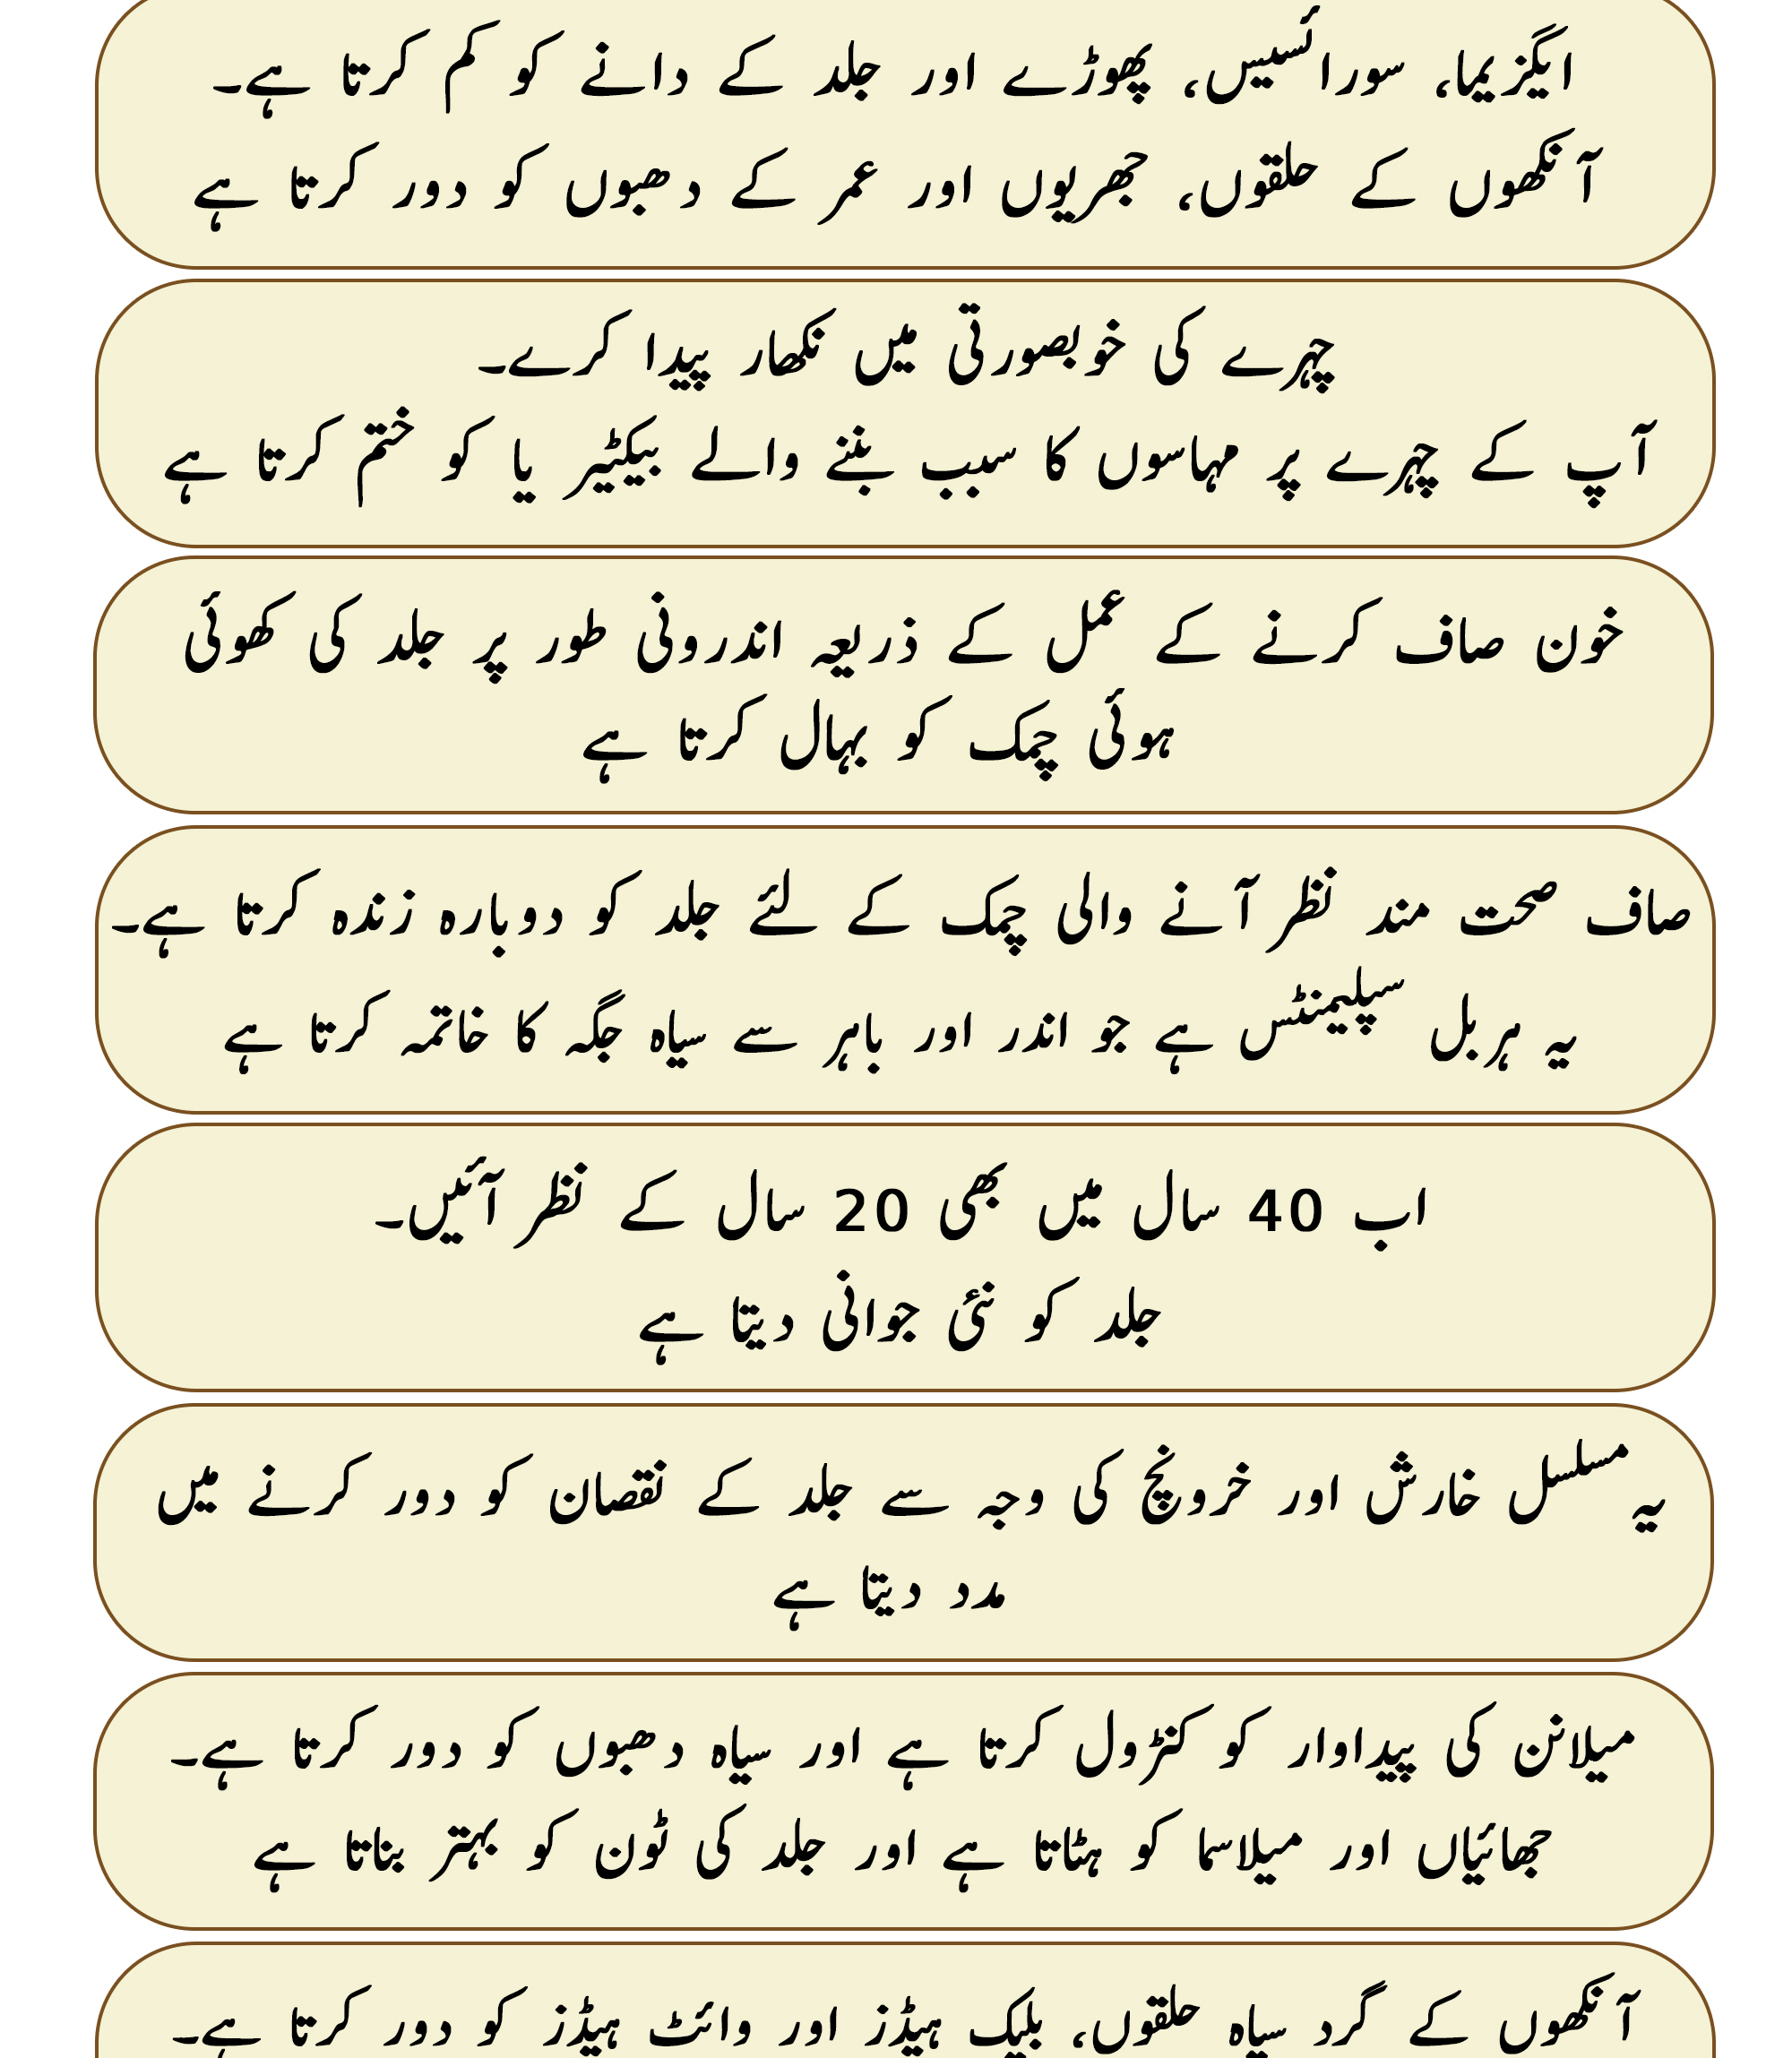 ایگزیما، سورائسیس، پھوڑے اور جلد کے دانے کو کم کرتا ہے۔
آنکھوں کے حلقوں، جھریوں اور عمر کے دھبوں کو دور کرتا ہے
چہرے کی خوبصورتی میں نکھار پیدا کرے۔
آپ کے چہرے پر مہاسوں کا سبب بننے والے بیکٹیر یا کو ختم کرتا ہے
خون صاف کرنے کے عمل کے ذریعہ اندرونی طور پر جلد کی کھوئی
ہوئی چمک کو بہال کرتا ہے
صاف صحت مند نظر آنے والی چمک کے لئے جلد کو دوبارہ زندہ کرتا ہے۔
یہ ہربل سپلیمنٹس ہے جو اندر اور باہر سے سیاہ جگہ کا خاتمہ کرتا ہے
اب 40 سال میں بھی 20 سال کے نظر آئیں۔
جلد کو نئی جوانی دیتا ہے
یہ مسلسل خارش اور خرونچ کی وجہ سے جلد کے نقصان کو دور کرنے میں
مدد دیتا ہے
میلانن کی پیداوار کو کنٹرول کرتا ہے اور سیاہ دھبوں کو دور کرتا ہے۔
جھائیاں اور میلاسما کو ہٹاتا ہے اور جلد کی ٹون کو بہتر بناتا ہے
آنکھوں کے گرد سیاہ حلقوں، بلیک ہیڈز اور وائٹ ہیڈز کو دور کرتا ہے۔